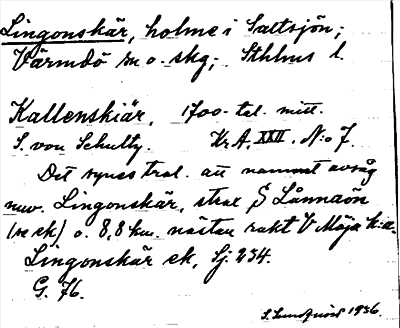 Lingonskär, holme i Saltsjön;
Värmdö sn o. skg; Sthlms l.
Kallenskiär, 1700-tal. mitt.
S. von Schultz. Kr.A. XXII. N:o 7.
Det synes trol. att namnet avsåg
nuv. Lingonskär, strax S Lånnaön
(se ek) o. 8,8 km. nästan rakt V Möja k:a.
Lingonskär ek, Sj. 234.
G. 76.
S. Sundqvist 1936.